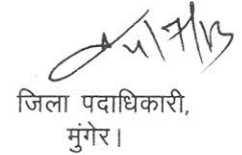 4/7/13
जिला पदाधिकारी,
मुंगेर।